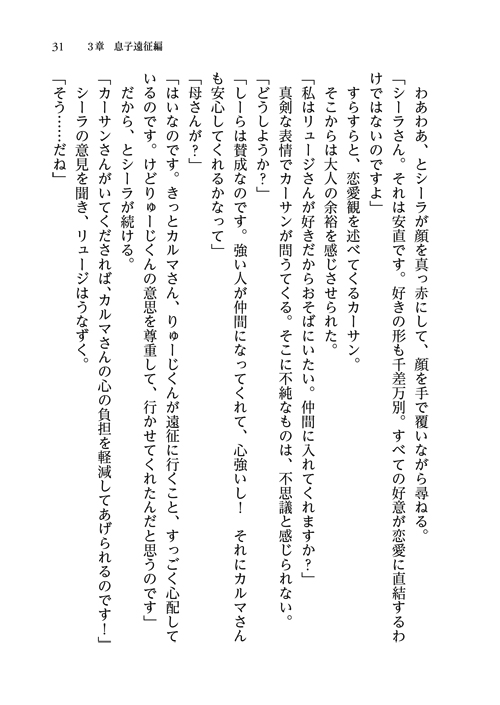 31　3章　息子遠征編
　わあわあ、とシーラが顔を真っ赤にして、顔を手で覆いながら尋ねる。
「シーラさん。それは安直です。好きの形も千差万別。すべての好意が恋愛に直結するわ
けではないのですよ」
　すらすらと、恋愛観を述べてくるカーサン。
　そこからは大人の余裕を感じさせられた。
「私はリュージさんが好きだからおそばにいたい。仲間に入れてくれますか？」
　真剣な表情でカーサンが問うてくる。そこに不純なものは、不思議と感じられない。
「どうしようか？」
「しーらは賛成なのです。強い人が仲間になってくれて、心強いし！　それにカルマさん
も安心してくれるかなって」
「母さんが？」
「はいなのです。きっとカルマさん、りゅーじくんが遠征に行くこと、すっごく心配して
いるのです。けどりゅーじくんの意思を尊重して、行かせてくれたんだと思うのです」
　だから、とシーラが続ける。
「カーサンさんがいてくだされば、カルマさんの心の負担を軽減してあげられるのです！」
　シーラの意見を聞き、リュージはうなずく。
「そう……だね」